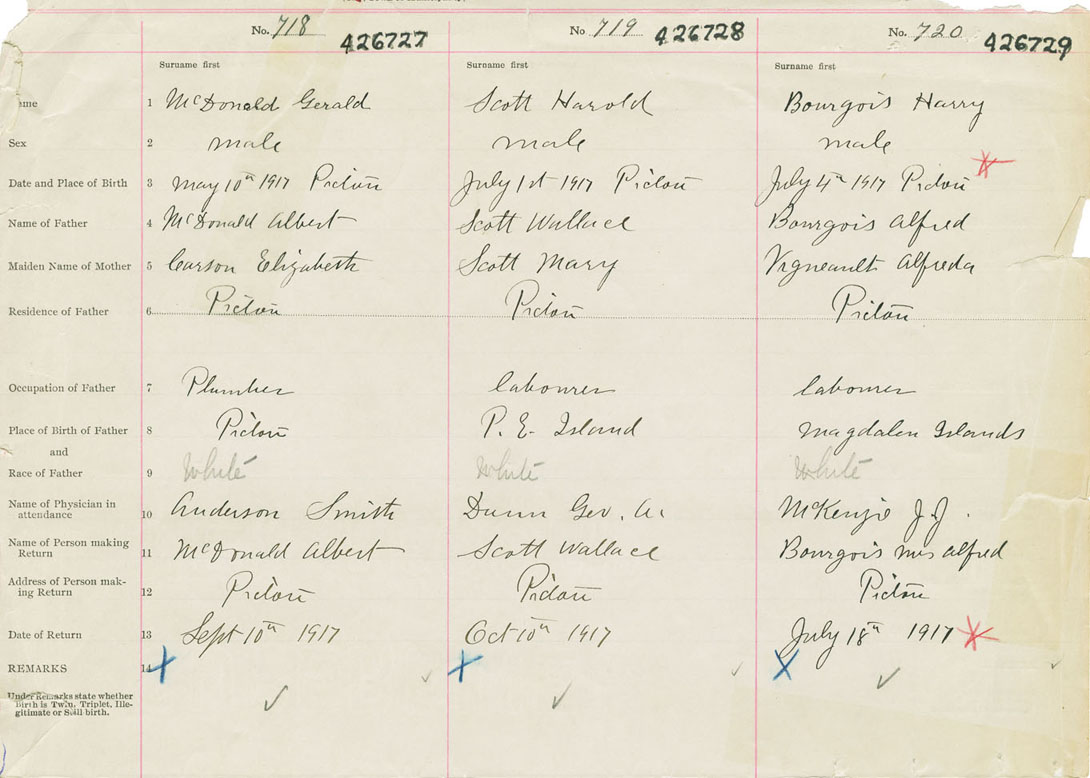 No. 718 426727 No 719 426728 No. 720 426729
Surname first Surname first Surname first
1 McDonald Gerald Scott Harold Bourgois Harry
Sex 2 male male male
Date and Place of Birth 3 May 10th 1917 Pictou July 1st 1917 Pictou July 4th 1917 Pictou
Name of Father 4 McDonald Albert Scott Wallace Bourgois Alfred
Maiden Name of Mother 5 Carson Elizabeth Scott Mary Vigneault Alfreda
Residence of Father 6 Pictou Pictou Pictou
Occupation of Father 7 Plumber labourer labourer
Place of Birth of Father 8 Pictou P. E. Island Magdalen Islands
and
Race of Father 9 White White White
Name of Physician in
attendance 10 Anderson Smith Dunn Geo. A. McKenzie J. J.
Name of Person making
Return 11 McDonald Albert Scott Wallace Bourgois Mrs Alfred
Address of Person mak-
ing Return 12 Pictou Pictou Pictou
Date of Return 13 Sept 10th 1917 Oct 10th 1917 July 18th 1917
REMARKS 14
Under Remarks state whether
Birth is Twin, Triplet, Ille-
gitimate or Still birth.